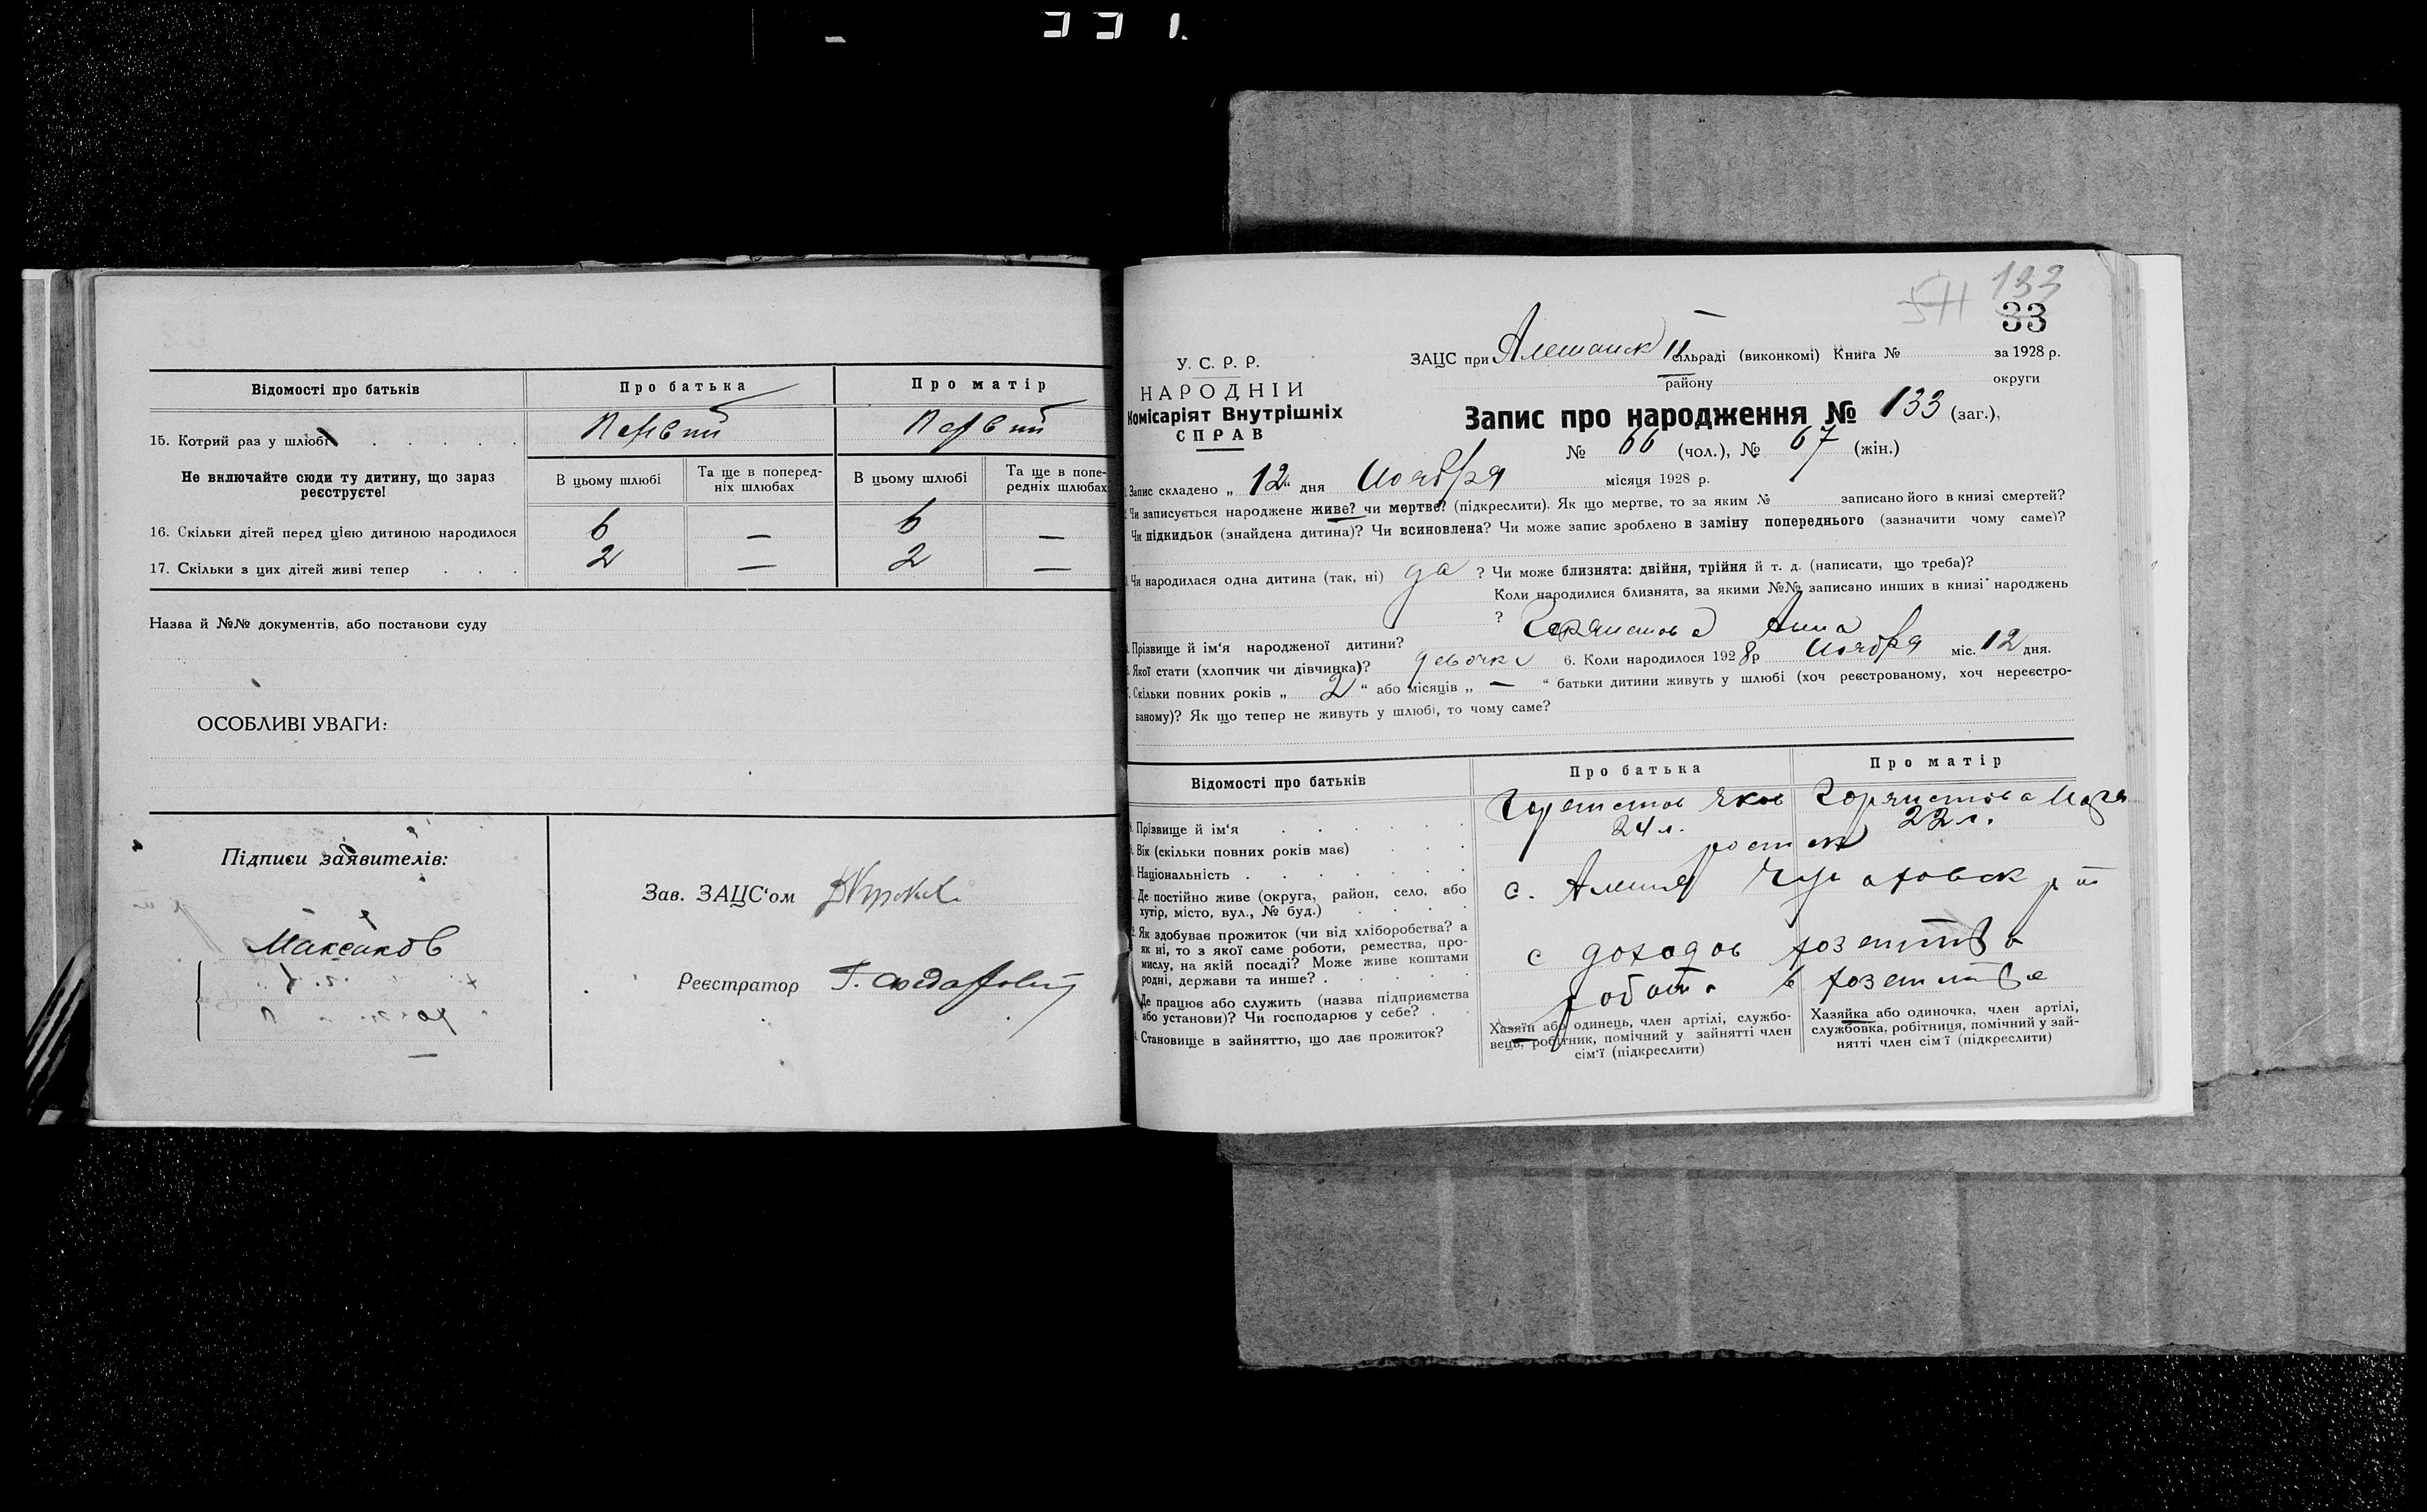 331.
Відомості про батьків Про батька Про матір
15. Котрий раз у шлюбі Первый Первый
Не включайте сюди ту дитину, що зараз реєструєте!
В цьому шлюбі Та ще в поперед-ніх шлюбах В цьому шлюбі Та ще в попе-редніх шлюбах
16. Скільки дітей перед цією дитиною народилося 6 — 6 —
17. Скільки з цих дітей живі тепер 2 — 2 —
Назва й №№ документів, або постанови суду
ОСОБЛИВІ УВАГИ:
Підписи заявителів:
Максаков
Зав. ЗАЦС'ом
Реєстратор
133
33
У. С. Р. Р.
НАРОДНІЙ
Комісаріят Внутрішніх
СПРАВ
ЗАЦС при Алешанск II сільраді (виконкомі) Книга № за 1928 р.
району округи
Запис про народження № 133 (заг.),
№ 66 (чол.), № 67 (жін.)
Запис складено „ 12 " дня Ноября місяця 1928 р.
Чи записується народжене живе? чи мертве? (підкреслити). Як що мертве, то за яким № записано його в книзі смертей?
Чи підкидьок (знайдена дитина)? Чи всиновлена? Чи може запис зроблено в заміну попереднього (зазначити чому саме)?
Чи народилася одна дитина (так, ні) да ? Чи може близнята: двійня, трійня й т. д. (написати, що треба)?
Коли народилися близнята, за якими №№ записано инших в книзі народжень
?
Прізвище й ім'я народженої дитини? Анна
Якої стати (хлопчик чи дівчинка)? девочка 6. Коли народилося 1928 р Ноября міс. 12 дня.
Скільки повних років „ 2 " або місяців „ — " батьки дитини живуть у шлюбі (хоч реєстрованому, хоч нереєстро-
ваному)? Як що тепер не живуть у шлюбі, то чому саме?
Відомості про батьків Про батька Про матір
Прізвище й ім'я Яков
Вік (скільки повних років має) 24 л. 22 л.
Національність
Де постійно живе (округа, район, село, або
хутір, місто, вул., № буд.) с.
Як здобуває прожиток (чи від хліборобства? а
як ні, то з якої саме роботи, ремества, про-
мислу, на якій посаді? Може живе коштами
родні, держави та инше? с доходов
Де працює або служить (назва підприємства
або установи)? Чи господарює у себе? в
Становище в зайняттю, що дає прожиток?
Хазяїн або одинець, член артілі, службо-
вець, робітник, помічний у зайнятті член
сім'ї (підкреслити)
Хазяйка або одиночка, член артілі,
службовка, робітниця, помічний у зай-
нятті член сім'ї (підкреслити)